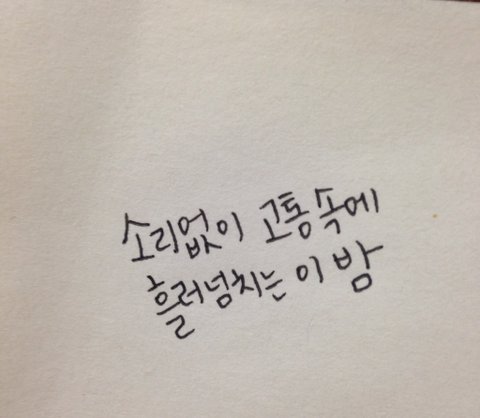 소리없이 고통속에
흘러넘치는 이 밤